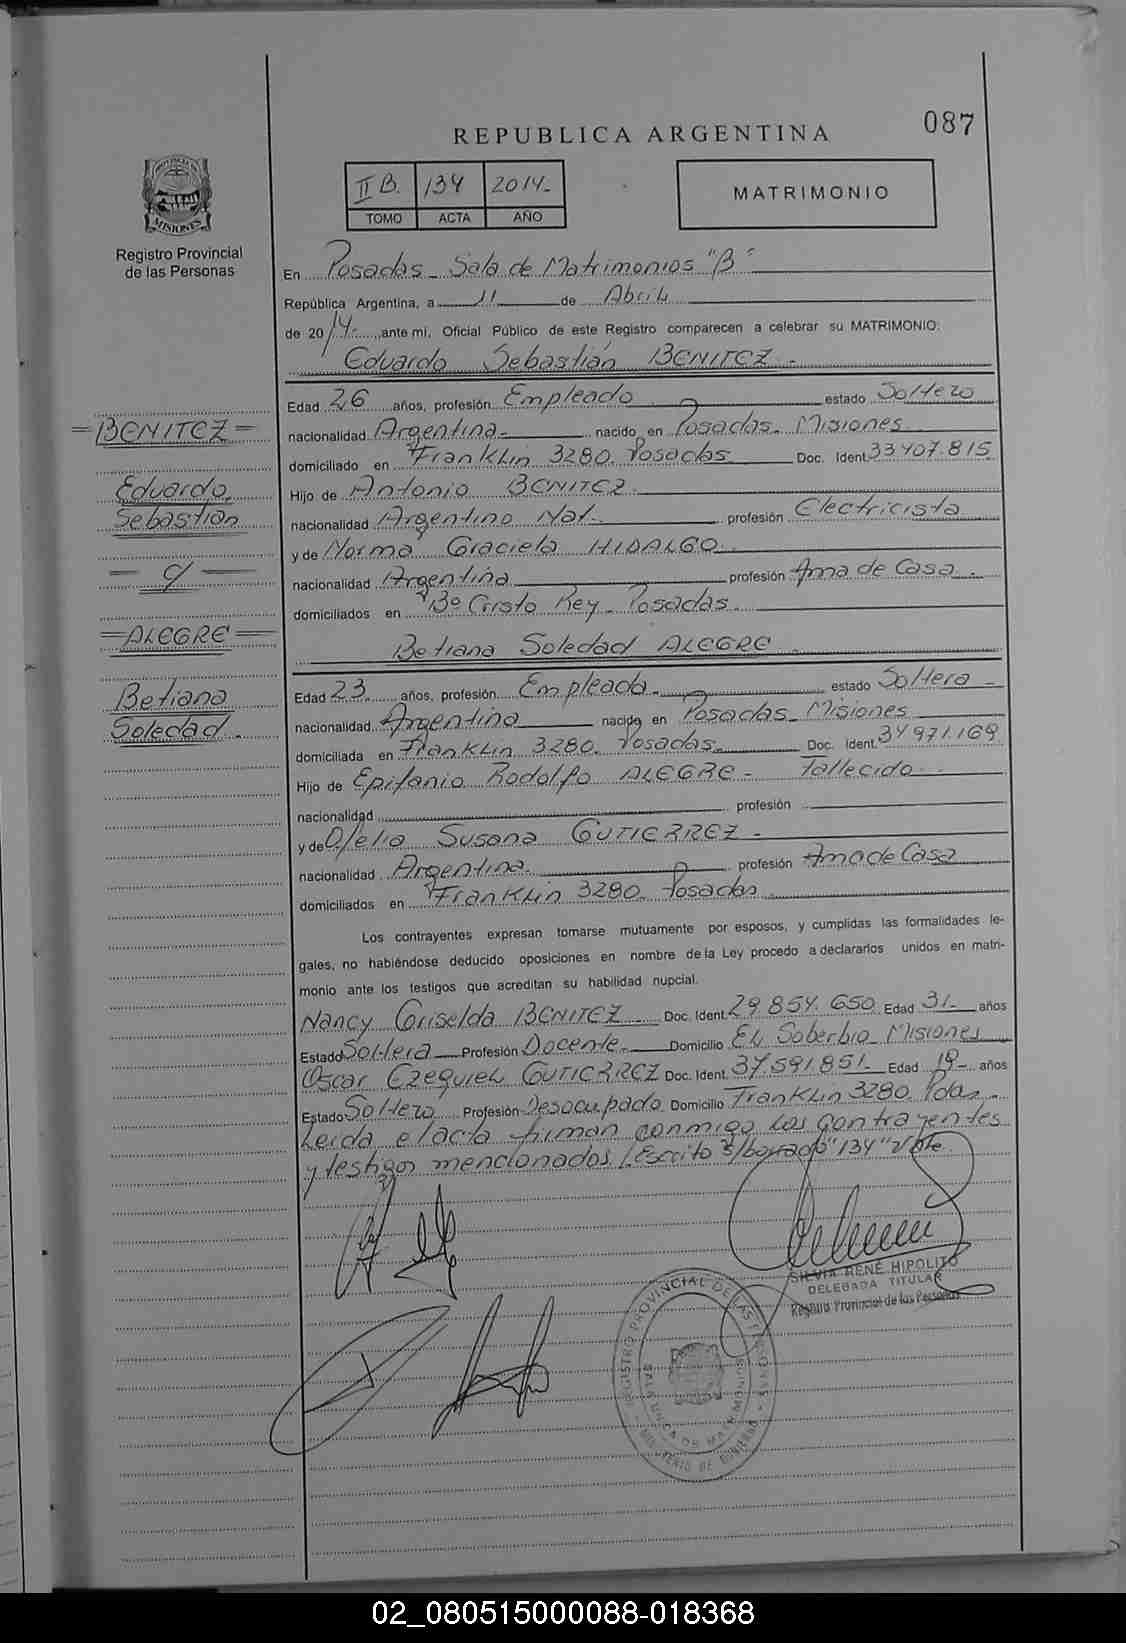 087
REPUBLICA ARGENTINA
II B. 134 2014-
TOMO ACTA AÑO
MATRIMONIO
PROVINCIA DE
MISIONES
Registro Provincial
de las Personas
En Posadas - Sala de Matrimonios "B"
República Argentina, a 11 de Abril
de 2014-, ante mi, Oficial Público de este Registro comparecen a celebrar su MATRIMONIO:
Eduardo Sebastián BENITEZ -
Edad 26 años, profesión Empleado estado Soltero
nacionalidad Argentina- nacido en Posadas- Misiones
domiciliado en Franklin 3280. Posadas Doc. Ident. 33.407.815
Hijo de Antonio BENITEZ.
nacionalidad Argentino Nat. profesión Electricista
y de Norma Graciela HIDALGO.
nacionalidad Argentina profesión Ama de Casa.
domiciliados en Bº Cristo Rey- Posadas.
Betiana Soledad ALEGRE
Edad 23 años, profesión Empleada. estado Soltera-
nacionalidad Argentina nacida en Posadas- Misiones
domiciliada en Franklin 3280. Posadas. Doc. Ident. 34.971.169
Hijo de Epifanio Rodolfo ALEGRE - Fallecido
nacionalidad profesión
y de Ofelia Susana GUTIERREZ -
nacionalidad Argentina. profesión Ama de Casa
domiciliados en Franklin 3280. Posadas
Los contrayentes expresan tomarse mutuamente por esposos, y cumplidas las formalidades le-
gales, no habiéndose deducido oposiciones en nombre de la Ley procedo a declararlos unidos en matri-
monio ante los testigos que acreditan su habilidad nupcial.
Nancy Griselda BENITEZ - Doc. Ident. 29.854.650 Edad 31- años
Estado Soltera Profesión Docente- Domicilio El Soberbio- Misiones
Oscar Ezequiel GUTIERREZ Doc. Ident. 37.591.851- Edad 19- años
Estado Soltero Profesión Desocupado Domicilio Franklin 3280 Pdas-
Leida el acta firman conmigo los contrayentes
y testigos mencionados/. Escrito s/borrado "134" Vale.
=BENITEZ=
Eduardo
Sebastián
- c/ -
=ALEGRE=
Betiana
Soledad.
SILVIA RENÉ HIPOLITO
DELEGADA TITULAR
Registro Provincial de las Personas
REGISTRO PROVINCIAL DE LAS PERSONAS
MINISTERIO DE GOBIERNO
02_080515000088-018368